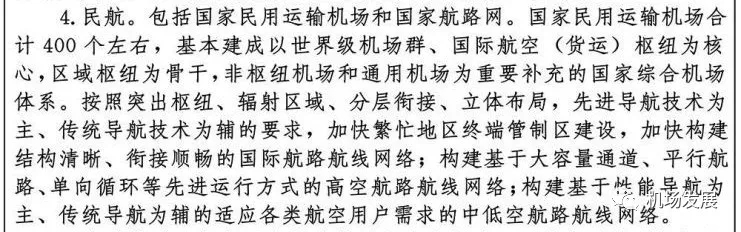 4.民航。包括国家民用运输机场和国家航路网。国家民用运输机场合
计 400 个左右，基本建成以世界级机场群、国际航空（货运）枢纽为核
心，区域枢纽为骨干，非枢纽机场和通用机场为重要补充的国家综合机场
体系。按照突出枢纽、辐射区域、分层衔接、立体布局，先进导航技术为
主、传统导航技术为辅的要求，加快繁忙地区终端管制区建设，加快构建
结构清晰、衔接顺畅的国际航路航线网络；构建基于大容量通道、平行航
路、单向循环等先进运行方式的高空航路航线网络；构建基于性能导航为
主、传统导航为辅的适应各类航空用户需求的中低空航路航线网络。
机场发展